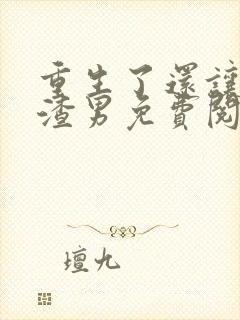 重生了還讓
渣男免費閱
壇九